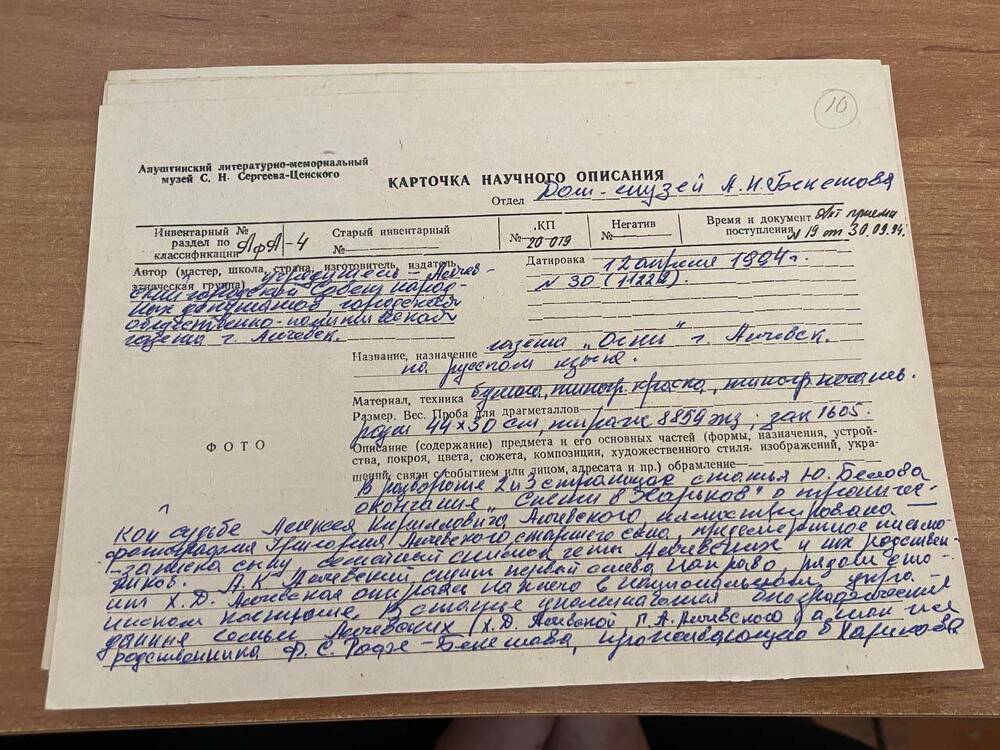 10
Алуштинский литературно-мемориальный
музей С. Н. Сергеева-Ценского
КАРТОЧКА НАУЧНОГО ОПИСАНИЯ
Отдел Дом-музей А.Н. Бекетова
Инвентарный №
раздел по
классификации АфА-4
Старый инвентарный
№
КП
№ 20 019
Негатив
№
Время и документ Акт приемки
поступления № 19 от 30.09.94.
Автор (мастер, школа, страна, изготовитель, издатель,
этническая группа) учредитель - Алчев-
ский городской Совет народ-
ных депутатов, городская
общественно-политическая
газета г. Алчевск.
Датировка 12 апреля 1994 г.
№ 30 (11222).
Название, назначение газета „Огни" г. Алчевск.
на русском языке.
Материал, техника бумага, типогр. краска, типогр. печать.
Размер. Вес. Проба для драгметаллов
разм 44×30 см, тираж 8859 экз; зак 1605.
ФОТО
Описание (содержание) предмета и его основных частей (формы, назначения, устрой-
ства, покроя, цвета, сюжета, композиции, художественного стиля, изображений, укра-
шений, связи с событием или лицом, адресата и пр.) обрамление
В развороте 2 и 3 страницах статья Ю. Белова
окончание „Спеши в Харьков" о трагичес-
кой судьбе Алексея Кирилловича Алчевского иллюстрирована
фотография Григория Алчевского старшего сына, предсмертное письмо-
-записка сыну, семейный снимок четы Алчевских и их родствен-
ников. А.К Алчевский сидит первый слева направо, рядом сто-
ит Х.Д. Алчевская опираясь на плечо в национальном укра-
инском костюме. В статье упоминаются биографические
данные семьи Алчевских (Х.Д. Алчевской, Г.А. Алчевского) а
родственника Ф. С. -Бекетова, в Харькове